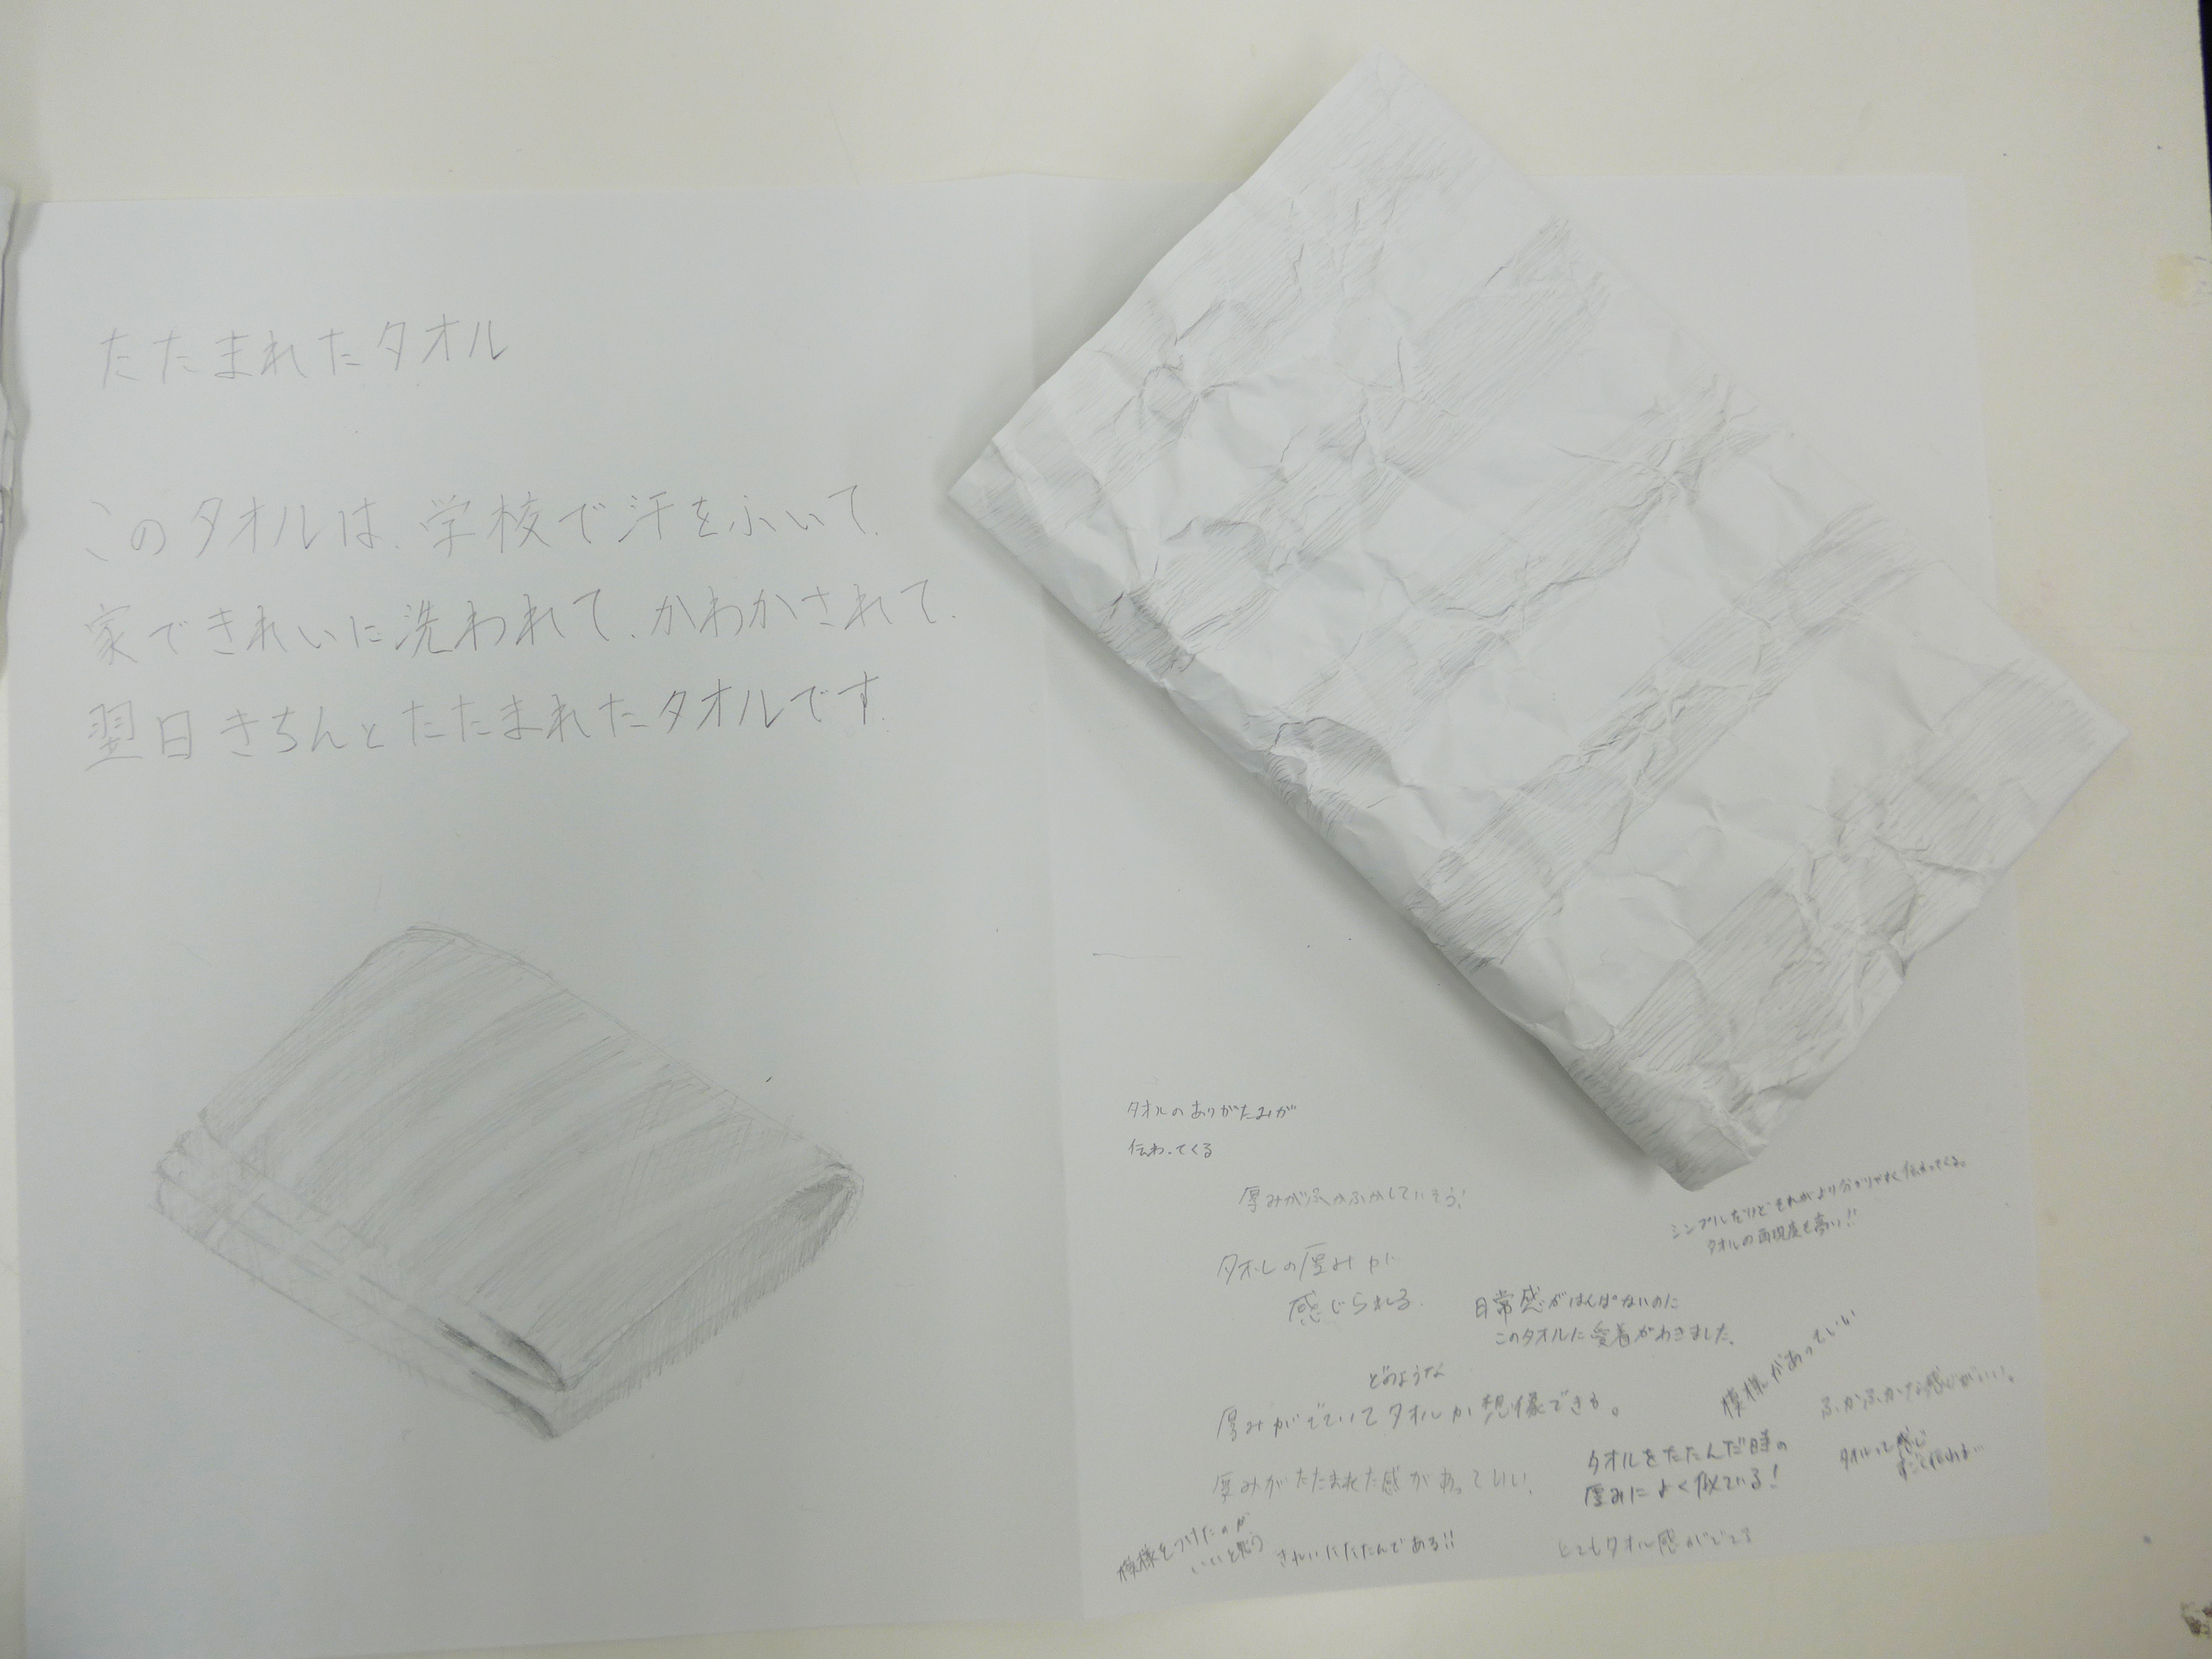 たたまれたタオル
このタオルは、学校で汗をふいて、
家できれいに洗われて、かわかされて、
翌日きちんとたたまれたタオルです。
タオルのありがたみが
伝わってくる
厚みがふかふかしていそう!
タオルの厚みが
感じられる。
シンプルだけどそれがより分かりやすく伝わってくる。
タオルの再現度も高い!!
日常感がはんぱないのに
このタオルに愛着がわきました。
どのような
厚みがでていてタオルか想像できる。
模様があっていい
ふかふかな感じがいい!
厚みがたたまれた感があっていい!
タオルをたたんだ時の
厚みによく似ている!
タオルって感じ
模様をつけたのが
いいと思う
きれいにたたんである!!
とてもタオル感がでてる